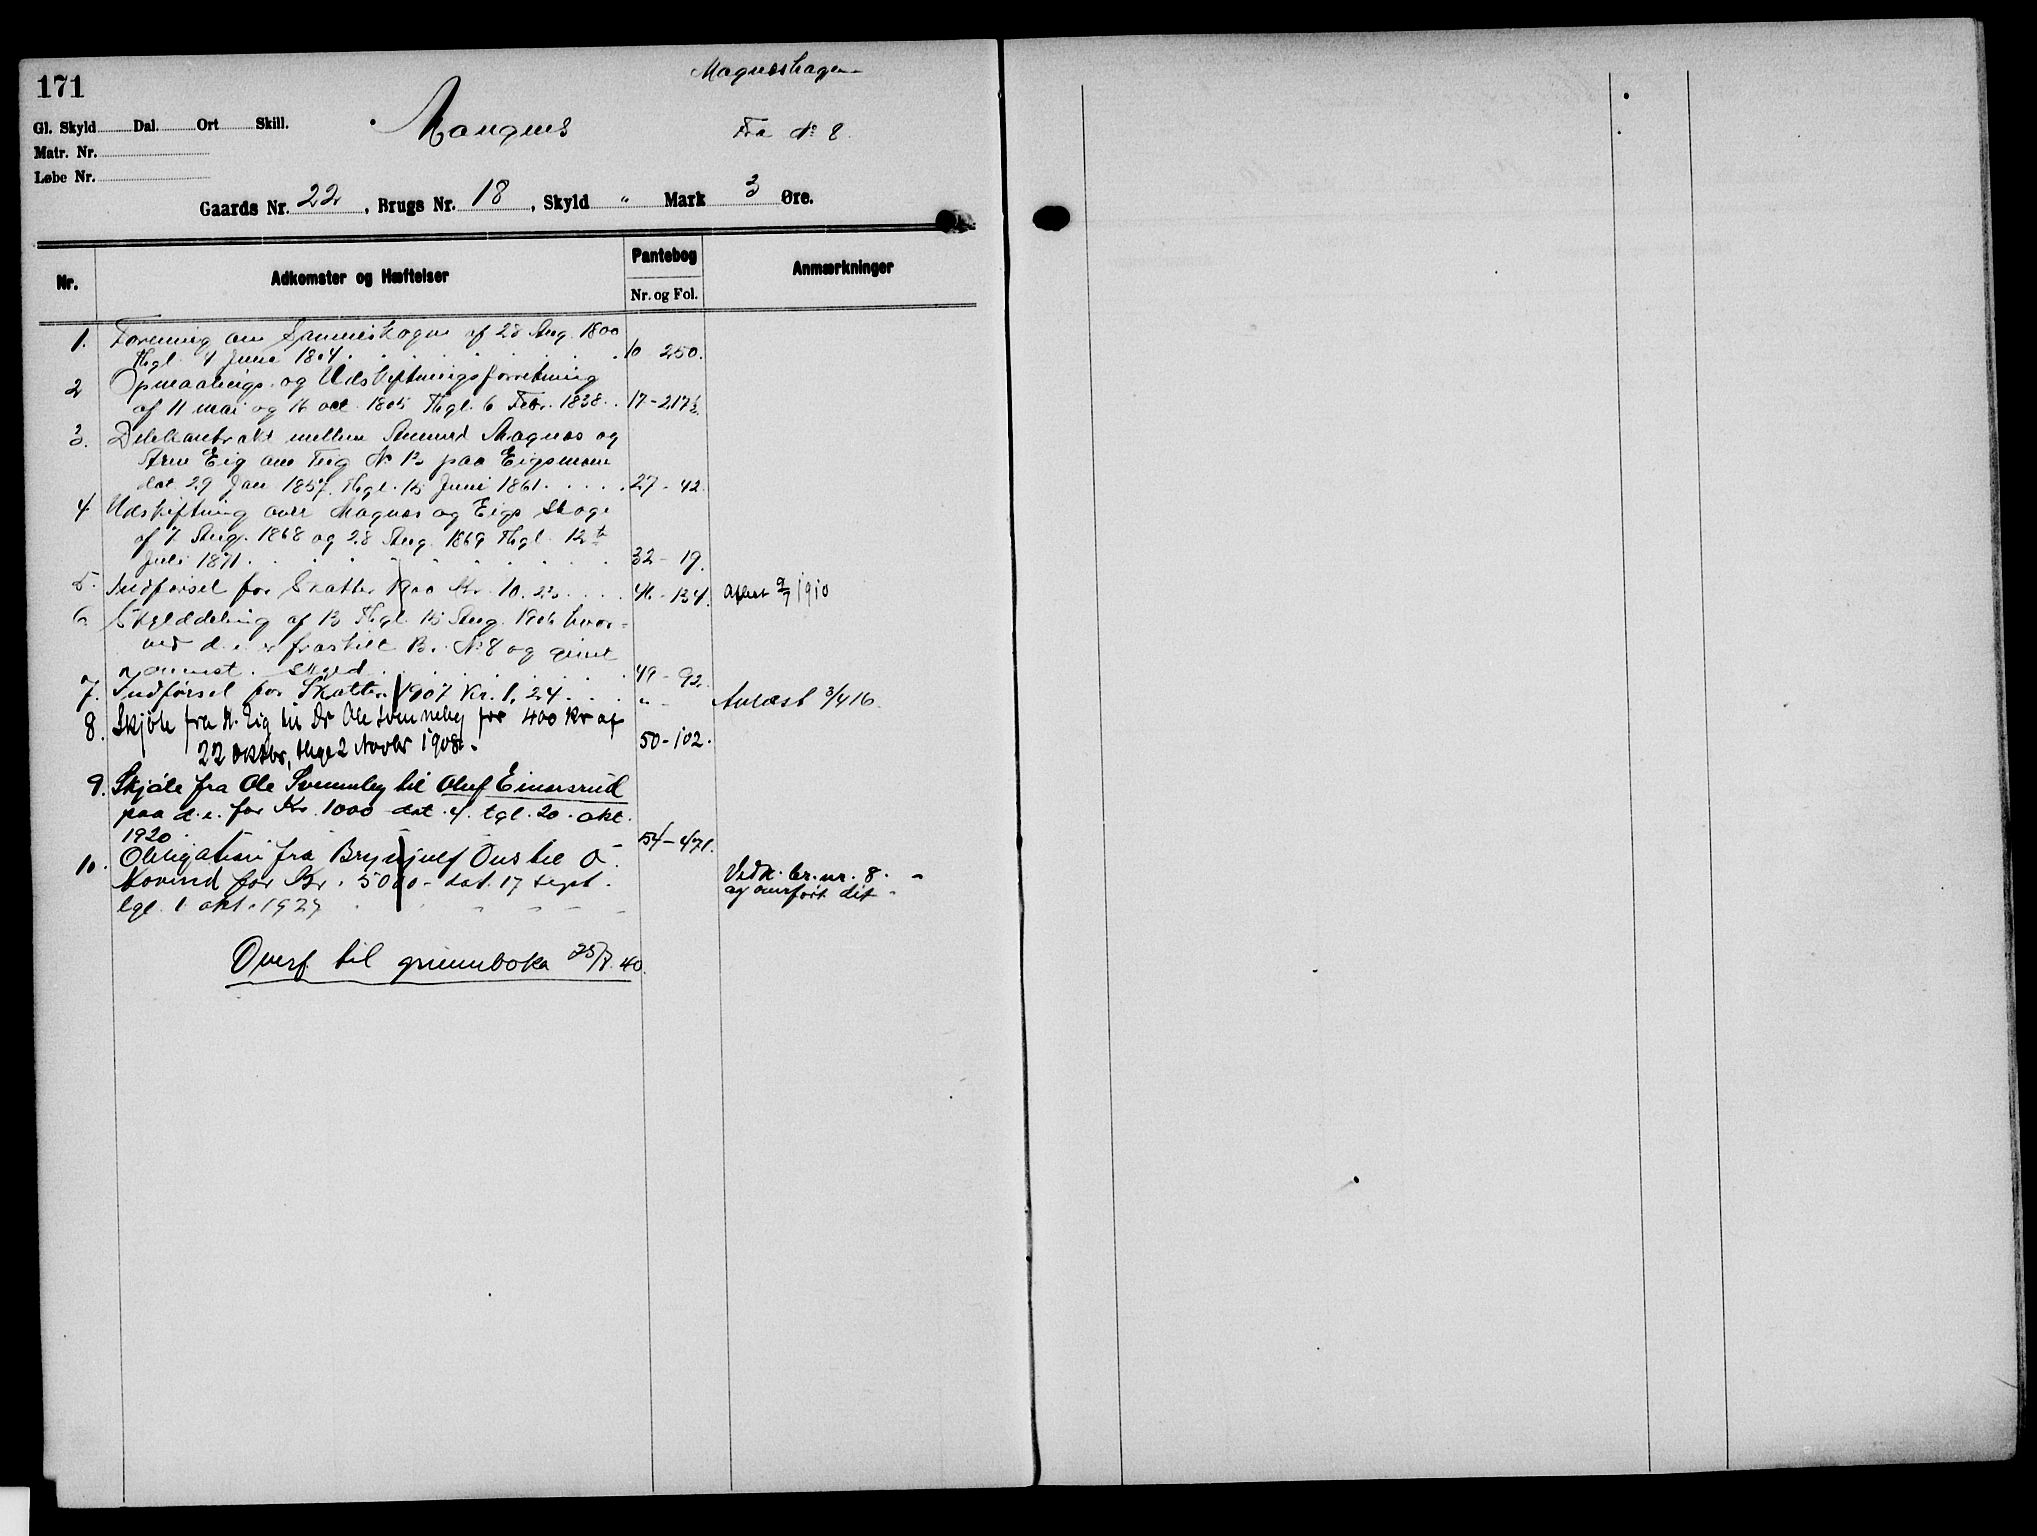 171
Magneshagen
Gl. Skyld Dal. Ort Skill.
Mangnes
Fra No 8.
Matr. Nr.
Løbe Nr.
Gaards Nr. 22, Brugs Nr. 18, Skyld " Mark 3 Øre.
Nr. Adkomster og Hæftelser Pantebog Anmærkninger
Nr. og Fol.
1. Forening om af 28 Aug. 1800
Thgl. 4 Juni 1804. 10 250.
2 Opmaalings- og Udskiftningsforretning
af 11 mai og 16 oct. 1805 Thgl. 6 Febr. 1838. 17-217½
3. Delekontrakt mellem Magnes og
Arne Eig om Teig No 13 paa Eigsmoen
dat 29 Jan 1857. Thgl. 15 Juni 1861. 27-42.
4 Udskiftning over Magnes og Eigs Skoge
af 7 Aug. 1868 og 28 Aug. 1869 Thgl. 12te
Juli 1871. 32-19.
5. Indførsel for Skatter 1900 Kr. 10.23. 46-134. Aflæst 9/7 1910
6. Skylddeling af 13 Thgl. 15 Aug. 1906 hvor-
ved d. e. er fraskilt Br. No 8 og givet
Skyld. 49-92.
7. Indførsel for Skatter 1907 Kr. 1,24. " - Avlæst 3/4 16.
8. Skjøte fra H. Eig til Dr Ole Svenneby for 400 Kr af
22 Oktbr, thgl 2 Novbr 1908. 50-102.
9. Skjøte fra Ole Svenneby til Oluf Einarsrud
paa d. e. for Kr. 1000 dat. & tgl. 20. okt.
1920. 54-471.
10. Obligation fra Brynjulf Ous til O.
Hovind for Kr. 5000 - dat. 17 sept. Vedk. br. nr. 8.
tgl. 1. okt. 1927 og overført dit
Overf. til grunnboka 25/7. 40.